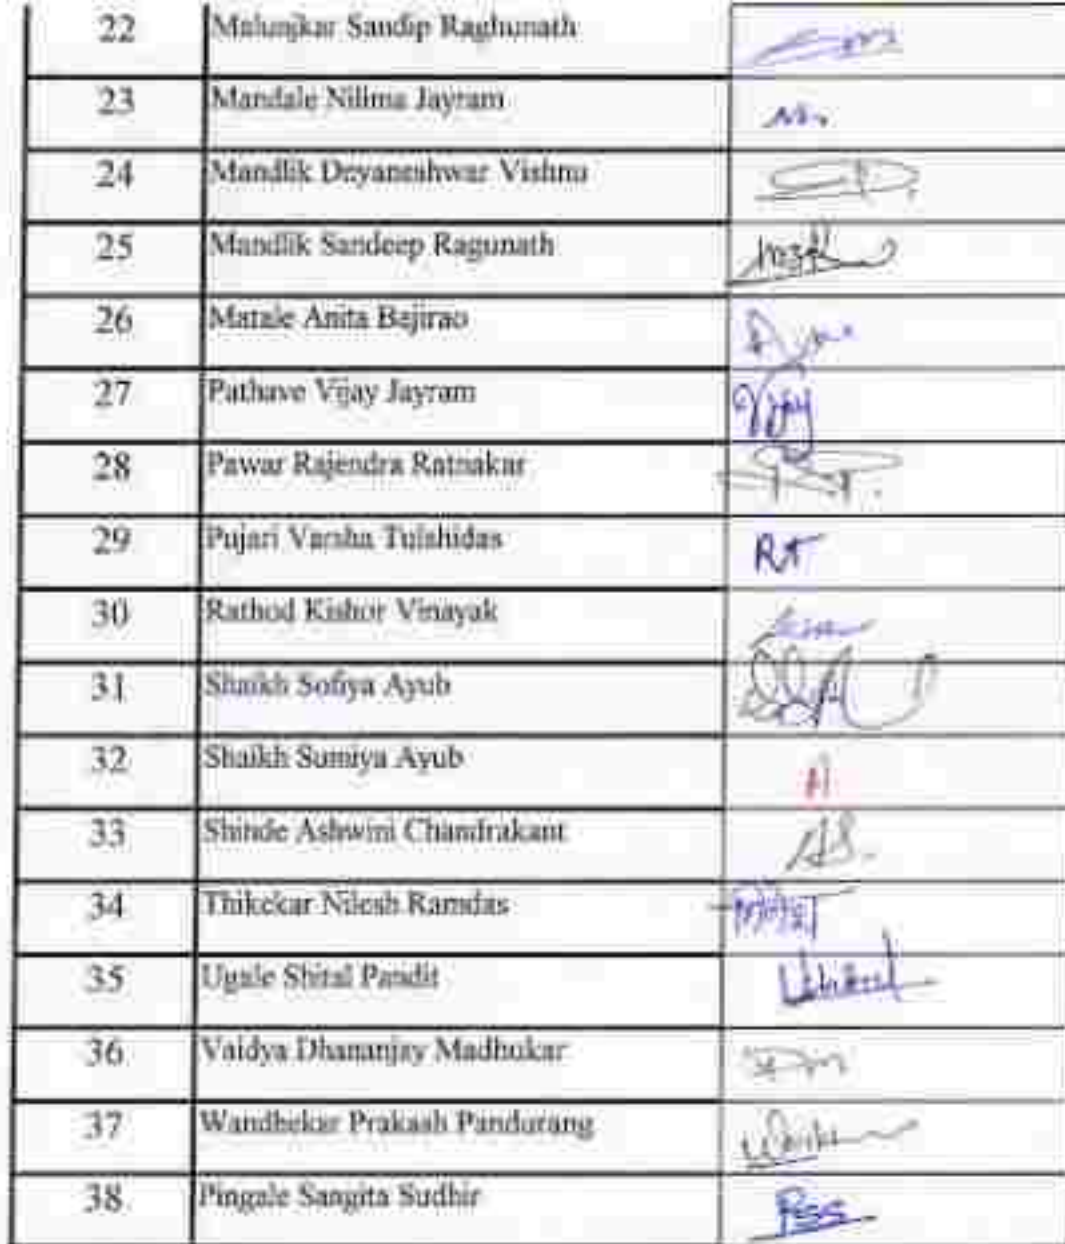 22 Malunjkar Sandip Raghunath
23 Mandale Nilima Jayram
24 Mandlik Dnyaneshwar Vishnu
25 Mandlik Sandeep Ragunath
26 Matale Anita Bajirao
27 Pathave Vijay Jayram
28 Pawar Rajendra Ratnakar
29 Pujari Varsha Tulshidas RT
30 Rathod Kishor Vinayak
31 Shaikh Sofiya Ayub
32 Shaikh Sumiya Ayub
33 Shinde Ashwini Chandrakant AS.
34 Thikekar Nilesh Ramdas
35 Ugale Shital Pandit
36 Vaidya Dhananjay Madhukar
37 Wandhekar Prakash Pandurang
38 Pingale Sangita Sudhir PSS